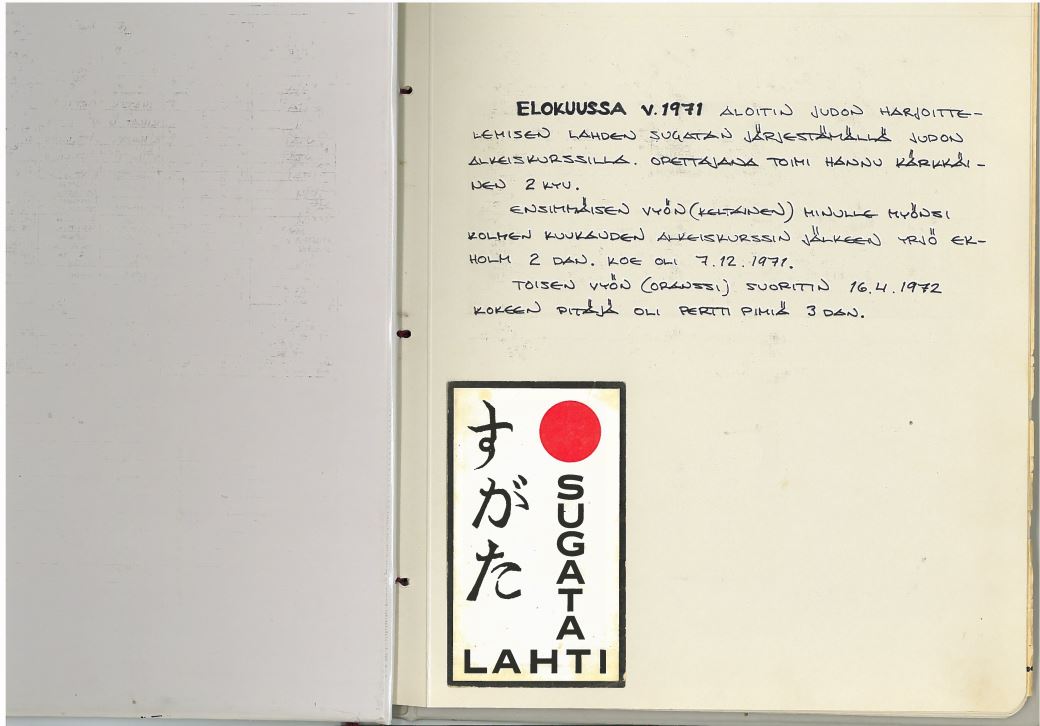 ELOKUUSSA V.1971 ALOITIN JUDON HARJOITTE-
LEMISEN LAHDEN SUGATAN JÄRJESTÄMÄLLÄ JUDON
ALKEISKURSSILLA. OPETTAJANA TOIMI HANNU KÄRKKÄI-
NEN 2 KYU.
ENSIMMÄISEN VYÖN (KELTAINEN) MINULLE MYÖNSI
KOLMEN KUUKAUDEN ALKEISKURSSIN JÄLKEEN YRJÖ EK-
HOLM 2 DAN. KOE OLI 7.12.1971.
TOISEN VYÖN (ORANSSI) SUORITIN 16.4.1972
KOKEEN PITÄJÄ OLI PERTTI PIMIÄ 3 DAN.
すがた
SUGATA
LAHTI